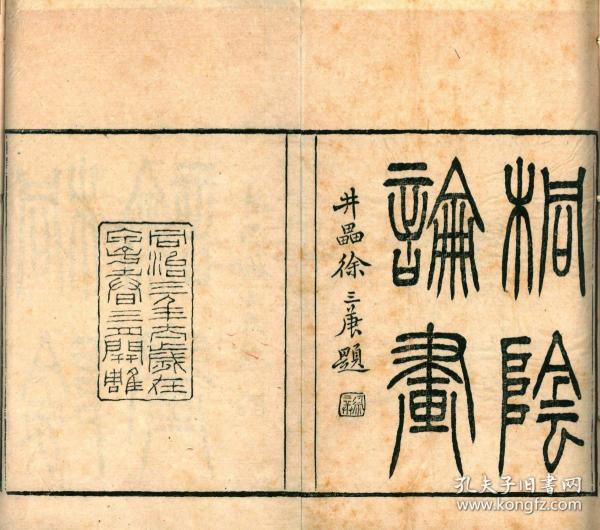 桐陰
論畫
井畾徐三庚題
同治三年太歲在
春三開雕
孔夫子旧書网
www.kongfz.com